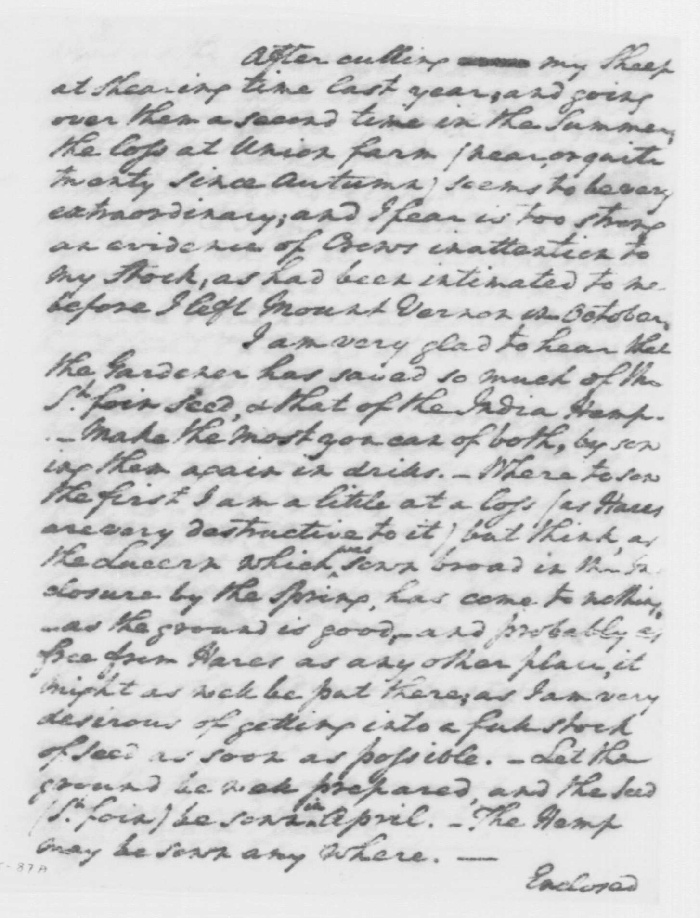 After culling my Sheep
at shearing time last year, and going
over them a second time in the Summer,
the loss at Union farm (near, or quite
twenty since Autumn) seems to be very
extraordinary; and I fear is too strong
an evidence of Crows inattention to
my stock, as had been intimated to me
before I left Mount Vernon in October.
I am very glad to hear that
the Gardener has saved so much of the
St. foin seed, & that of the India Hemp.
- Make the most you can of both, by sow
ing them again in drills. - Where to sow
the first I am a little at a loss (as Hares
are very destructive to it) but think, as
the Lucern which was sown broad in the In
closure by the Spring, has come to nothing,
- as the ground is good, and probably as
free from Hares as any other place, it
might as well be put there; as I am very
desirous of getting into a full stock
of seed as soon as possible. - Let the
ground be well prepared, and the seed
(St. foin) be sown in April. - The Hemp
may be sown any where. -
Enclosed